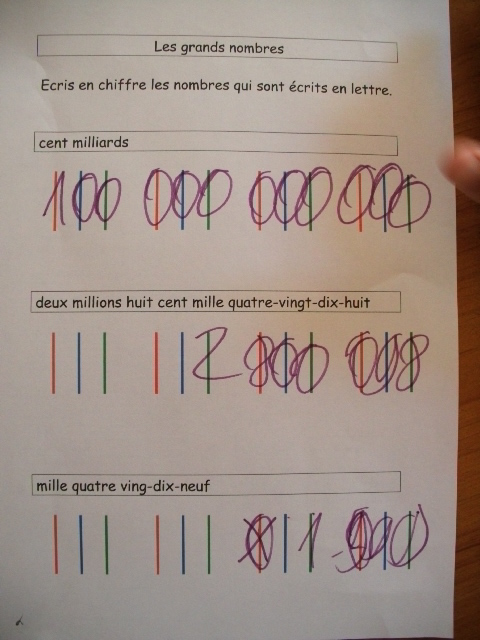 Les grands nombres
Ecris en chiffre les nombres qui sont écrits en lettre.
cent milliards
100 000 000 000
deux millions huit cent mille quatre-vingt-dix-huit
2 800
mille quatre ving-dix-neuf
1